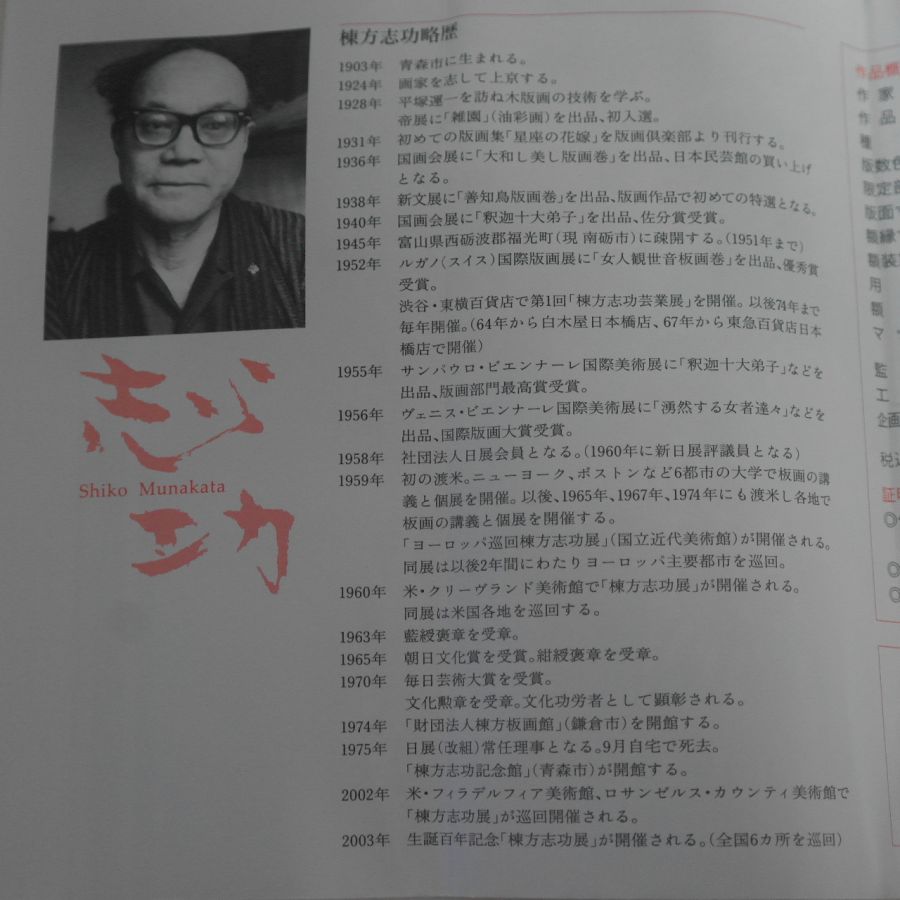 棟方志功略歴
1903年 青森市に生まれる。
1924年 画家を志して上京する。
1928年 平塚運一を訪ね木版画の技術を学ぶ。
帝展に「雑園」(油彩画)を出品、初入選。
1931年 初めての版画集「星座の花嫁」を版画倶楽部より刊行する。
1936年 国画会展に「大和し美し版画巻」を出品、日本民芸館の買い上げ
となる。
1938年 新文展に「善知鳥版画巻」を出品、版画作品で初めての特選となる。
1940年 国画会展に「釈迦十大弟子」を出品、佐分賞受賞。
1945年 富山県西砺波郡福光町(現 南砺市)に疎開する。(1951年まで)
1952年 ルガノ(スイス)国際版画展に「女人観世音板画巻」を出品、優秀賞
受賞。
渋谷・東横百貨店で第1回「棟方志功芸業展」を開催。以後74年まで
毎年開催。(64年から白木屋日本橋店、67年から東急百貨店日本
橋店で開催)
1955年 サンパウロ・ビエンナーレ国際美術展に「釈迦十大弟子」などを
出品、版画部門最高賞受賞。
1956年 ヴェニス・ビエンナーレ国際美術展に「湧然する女者達々」などを
出品、国際版画大賞受賞。
1958年 社団法人日展会員となる。(1960年に新日展評議員となる)
1959年 初の渡米。ニューヨーク、ボストンなど6都市の大学で板画の講
義と個展を開催。以後、1965年、1967年、1974年にも渡米し各地で
板画の講義と個展を開催する。
「ヨーロッパ巡回棟方志功展」(国立近代美術館)が開催される。
同展は以後2年間にわたりヨーロッパ主要都市を巡回。
1960年 米・クリーヴランド美術館で「棟方志功展」が開催される。
同展は米国各地を巡回する。
1963年 藍綬褒章を受章。
1965年 朝日文化賞を受賞。紺綬褒章を受章。
1970年 毎日芸術大賞を受賞。
文化勲章を受章。文化功労者として顕彰される。
1974年 「財団法人棟方板画館」(鎌倉市)を開館する。
1975年 日展(改組)常任理事となる。9月自宅で死去。
「棟方志功記念館」(青森市)が開館する。
2002年 米・フィラデルフィア美術館、ロサンゼルス・カウンティ美術館で
「棟方志功展」が巡回開催される。
2003年 生誕百年記念「棟方志功展」が開催される。(全国6カ所を巡回)
志功
Shiko Munakata
作品
作家
作品
種
版数
限定
版面
額縁
額装
用
額
マ
監
工
企画
税込
証明